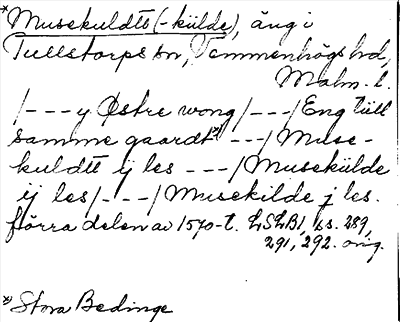 *Musekuldtt (-külde), äng i
Tullstorps sn, Vemmenhögs hd,
Malm. l.
/---y Østre wong/---/Eng tiill
samme gaardt*) ---/Muse-
kuldtt ij les ---/Musekülde
ij les/---/Musekilde j les.
förra delen av 1570-t. LSLB1, ss. 289,
291, 292. orig.
*) Stora Bedinge